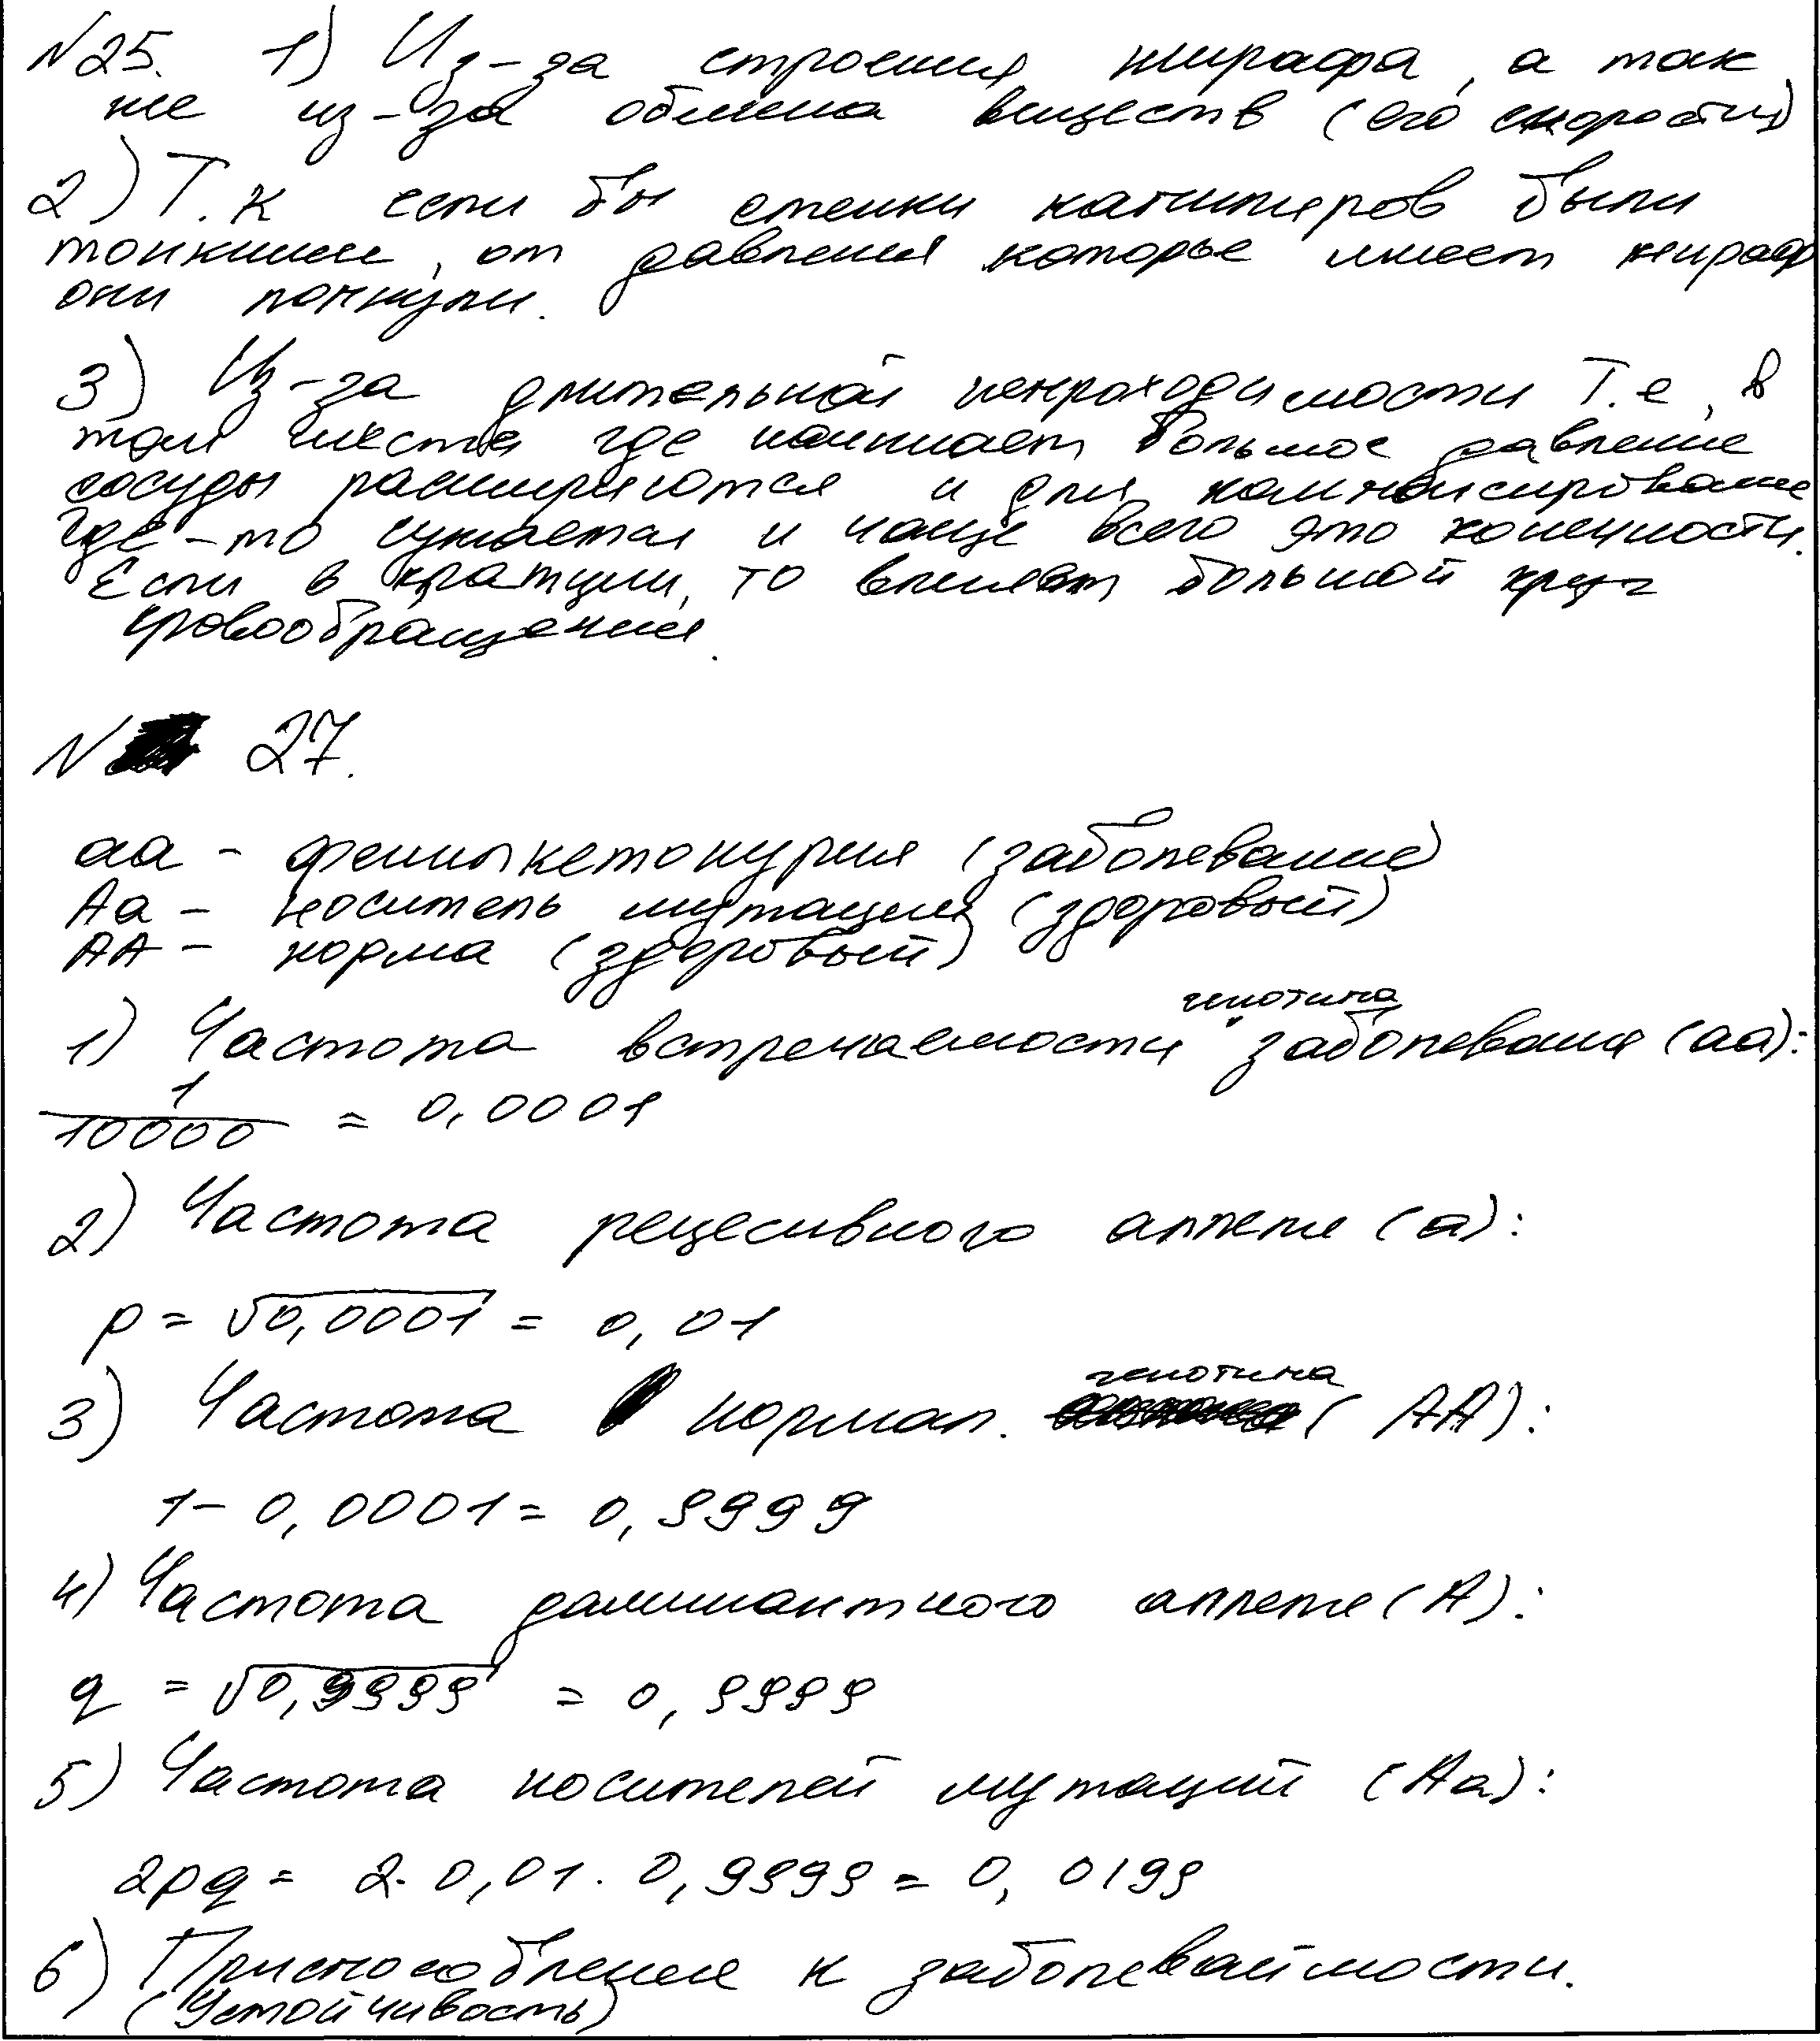 №25. 1) Из-за строения жирафа, а так
же из-за обмена веществ (его скорости)
2) Т.к если бы стенки капиляров были
тонкими, от давления которое имеет жираф
они лопнули.
3) Из-за длительной непроходимости т.е, в
том месте где начинает большое давление
сосуды расширяются и для компенсирование
где-то сужается и чаще всего это конечности.
Если в кратции, то влияет большой круг
кровообращения.
№ 27.
аа - фенилкетонурия (заболевание)
Аа - носитель мутации (здоровый)
АА - норма (здоровый)
генотипа
1) Частота встречаемости заболевания (аа):
1/10000 = 0,0001
2) Частота рецесивного аллеля (а):
p = √0,0001 = 0,01
генотипа
3) Частота нормал. (АА):
1 - 0,0001 = 0,9999
4) Частота доминантного аллеля (А):
q = √0,9999 = 0,9999
5) Частота носителей мутаций (Аа):
2pq = 2 · 0,01 · 0,9999 = 0,0199
6) Приспособление к заболеваймости.
(Устойчивость)